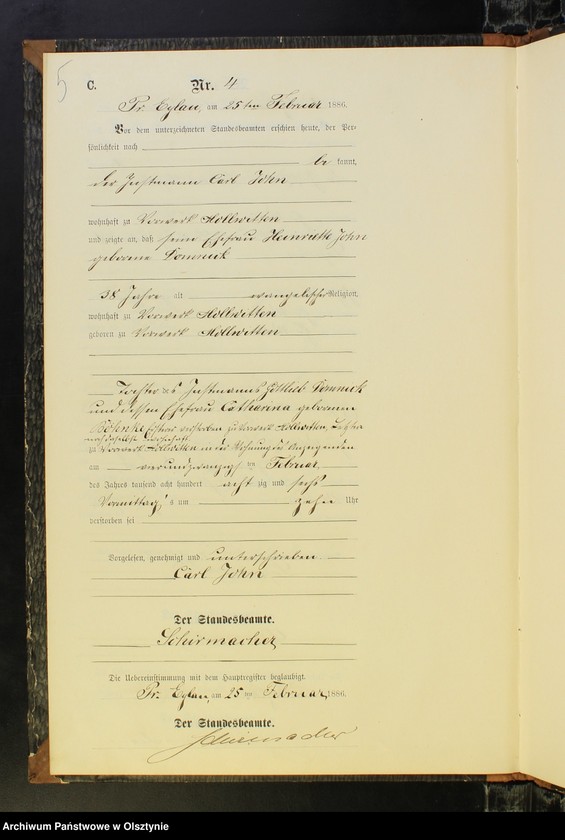 5
C. Nr. 4
Pr. Eylau, am 25ten Februar 1886.
Vor dem unterzeichneten Standesbeamten erschien heute, der Per-
sönlichkeit nach
be kannt,
der Instmann Carl John
wohnhaft zu Vorwerk Hollwitten
und zeigte an, daß seine Ehefrau Henriette John
geborene Domnick
38 Jahre alt evangelischer Religion,
wohnhaft zu Vorwerk Hollwitten
geboren zu Vorwerk Hollwitten
Tochter des Instmanns Gottlieb Domnick
und dessen Ehefrau Catharina geborenen
Böhnke, Ersterer verstorben zu Vorwerk Hollwitten, Letztere
noch daselbst wohnhaft.
zu Vorwerk Hollwitten in der Wohnung des Anzeigenden
am vierundzwanzigs ten Februar
des Jahres tausend acht hundert acht zig und sechs
Vormittag s um zehn Uhr
verstorben sei
Vorgelesen, genehmigt und unterschrieben
Carl John
Der Standesbeamte.
Schirmacher
Die Uebereinstimmung mit dem Hauptregister beglaubigt.
Pr. Eylau, am 25 ten Februar 1886.
Der Standesbeamte.
Schirmacher
Archiwum Państwowe w Olsztynie